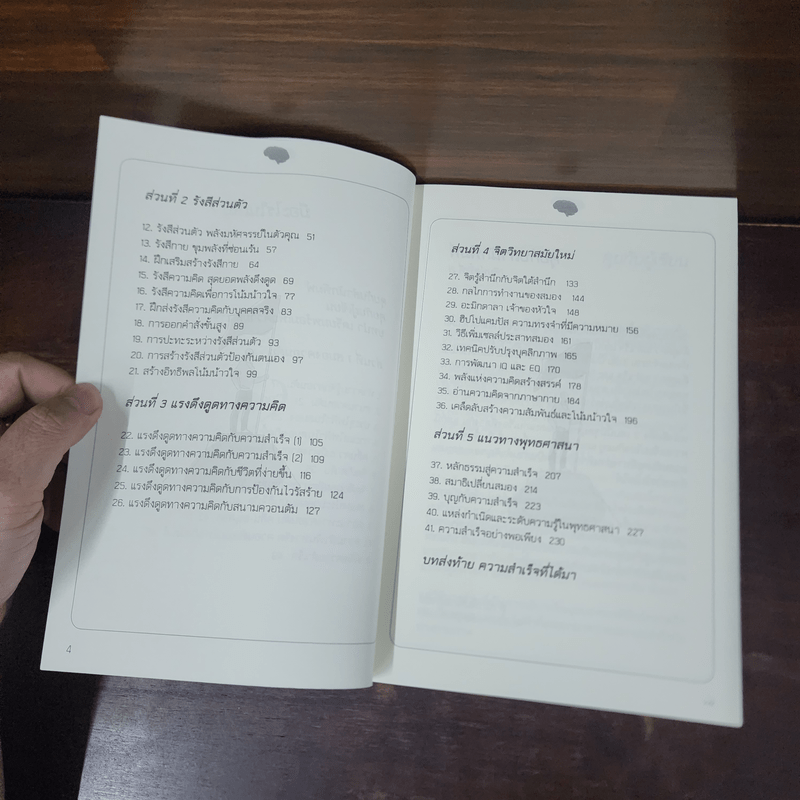 ส่วนที่ 2 รังสีส่วนตัว
12. รังสีส่วนตัว พลังมหัศจรรย์ในตัวคุณ 51
13. รังสีกาย ขุมพลังที่ซ่อนเร้น 57
14. ฝึกเสริมสร้างรังสีกาย 64
15. รังสีความคิด สุดยอดพลังดึงดูด 69
16. รังสีความคิดเพื่อการโน้มน้าวใจ 77
17. ฝึกส่งรังสีความคิดกับบุคคลจริง 83
18. การออกคำสั่งขั้นสูง 89
19. การปะทะระหว่างรังสีส่วนตัว 93
20. การสร้างรังสีส่วนตัวป้องกันตนเอง 97
21. สร้างอิทธิพลโน้มน้าวใจ 99
ส่วนที่ 3 แรงดึงดูดทางความคิด
22. แรงดึงดูดทางความคิดกับความสำเร็จ (1) 105
23. แรงดึงดูดทางความคิดกับความสำเร็จ (2) 109
24. แรงดึงดูดทางความคิดกับชีวิตที่ง่ายขึ้น 116
25. แรงดึงดูดทางความคิดกับการป้องกันไวรัสร้าย 124
26. แรงดึงดูดทางความคิดกับสนามควอนตัม 127
4
ส่วนที่ 4 จิตวิทยาสมัยใหม่
27. จิตรู้สำนึกกับจิตใต้สำนึก 133
28. กลไกการทำงานของสมอง 144
29. อะมิกดาลา เจ้าของหัวใจ 148
30. ฮิปโปแคมปัส ความทรงจำที่มีความหมาย 156
31. วิธีเพิ่มเซลล์ประสาทสมอง 161
32. เทคนิคปรับปรุงบุคลิกภาพ 165
33. การพัฒนา IQ และ EQ 170
34. พลังแห่งความคิดสร้างสรรค์ 178
35. อ่านความคิดจากภาษากาย 184
36. เคล็ดลับสร้างความสัมพันธ์และโน้มน้าวใจ 196
ส่วนที่ 5 แนวทางพุทธศาสนา
37. หลักธรรมสู่ความสำเร็จ 207
38. สมาธิเปลี่ยนสมอง 214
39. บุญกับความสำเร็จ 223
40. แหล่งกำเนิดและระดับความรู้ในพุทธศาสนา 227
41. ความสำเร็จอย่างพอเพียง 230
บทส่งท้าย ความสำเร็จที่ได้มา